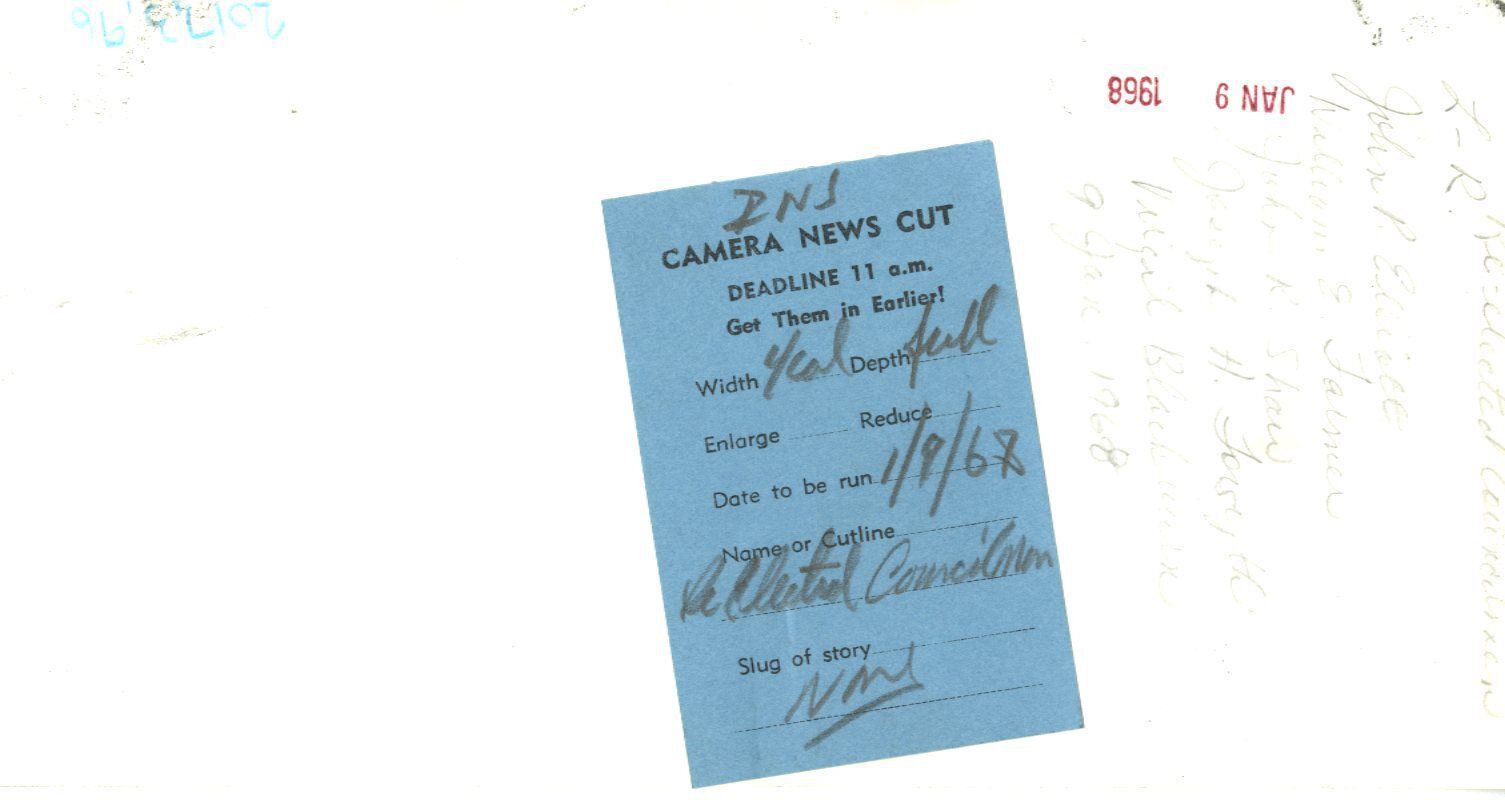 2017.22.96
JAN 9 1968
INS
CAMERA NEWS CUT
DEADLINE 11 a.m.
Get Them in Earlier!
Width 4 col Depth full
Enlarge Reduce
Date to be run 1/9/68
Name or Cutline
Re Elected Councilmen
Slug of story
L-R Re-elected Councilmen
John P. Elliott
William E. Farmer
John R. Shaw
Joseph H. Forsythe
Virgil Blackburn
9 Jan. 1968